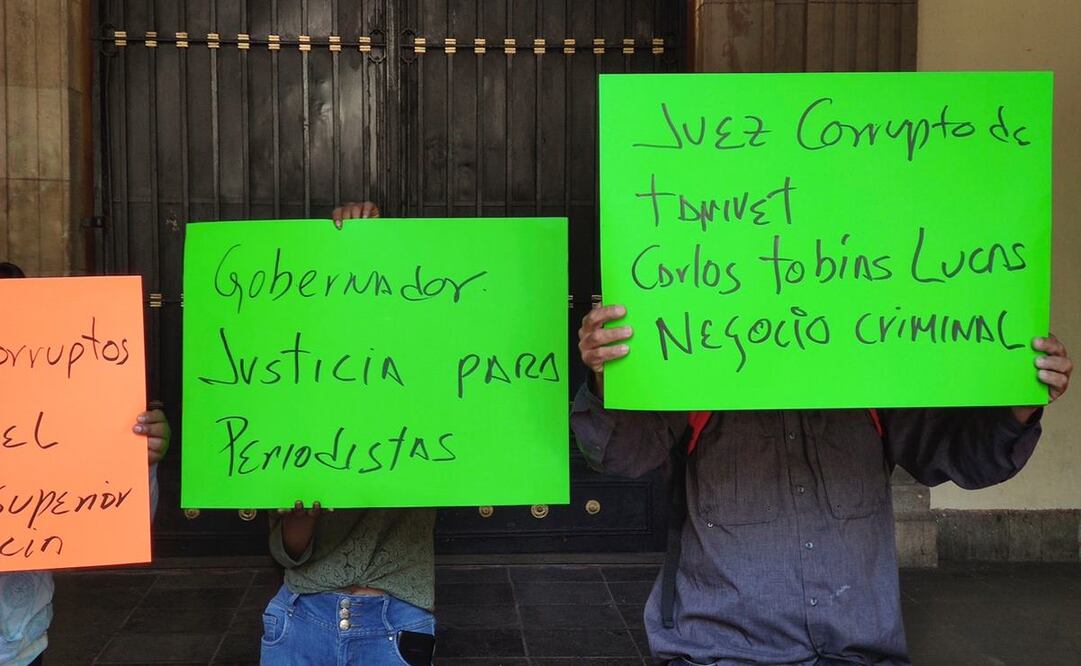 orruptos
EL
superior
Gobernador.
Justicia para
Periodistas
Juez Corrupto de
tanivet
Carlos tobias Lucas
Negocio criminal